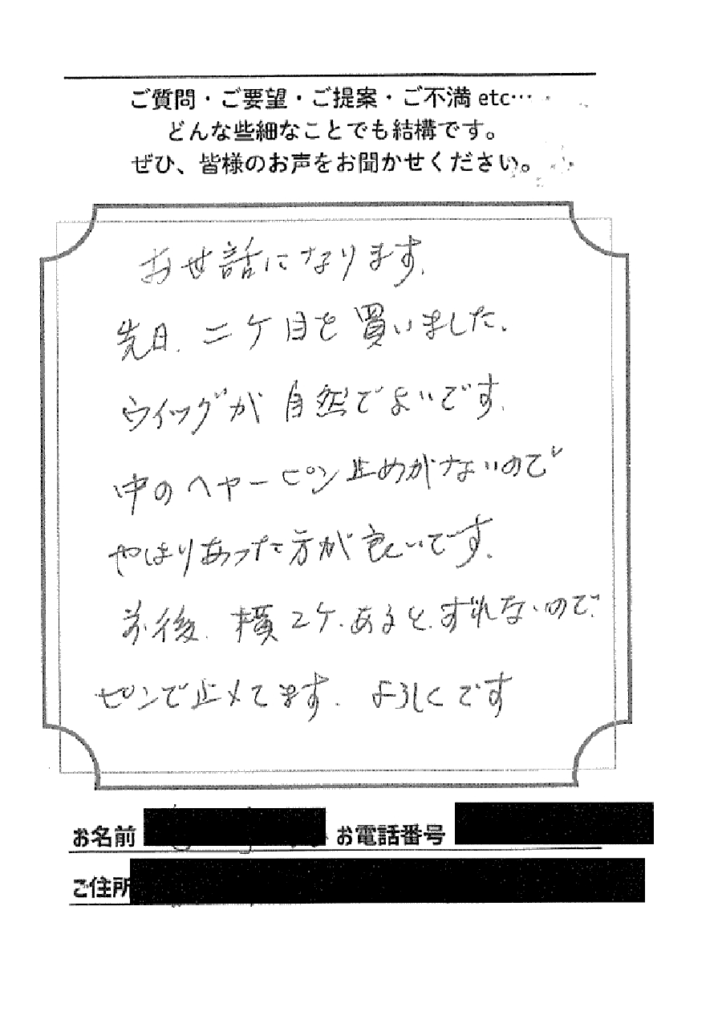 ご質問・ご要望・ご提案・ご不満 etc…
どんな些細なことでも結構です。
ぜひ、皆様のお声をお聞かせください。
お世話になります.
先日. 二ケ目を買いました.
ウイッグが 自然でよいです.
中のヘヤーピン止めがないので
やはりあった方が良いです.
前後. 横2ケ.あると.ずれないので.
ピンで止メてます. よろしくです
お名前 お電話番号
ご住所